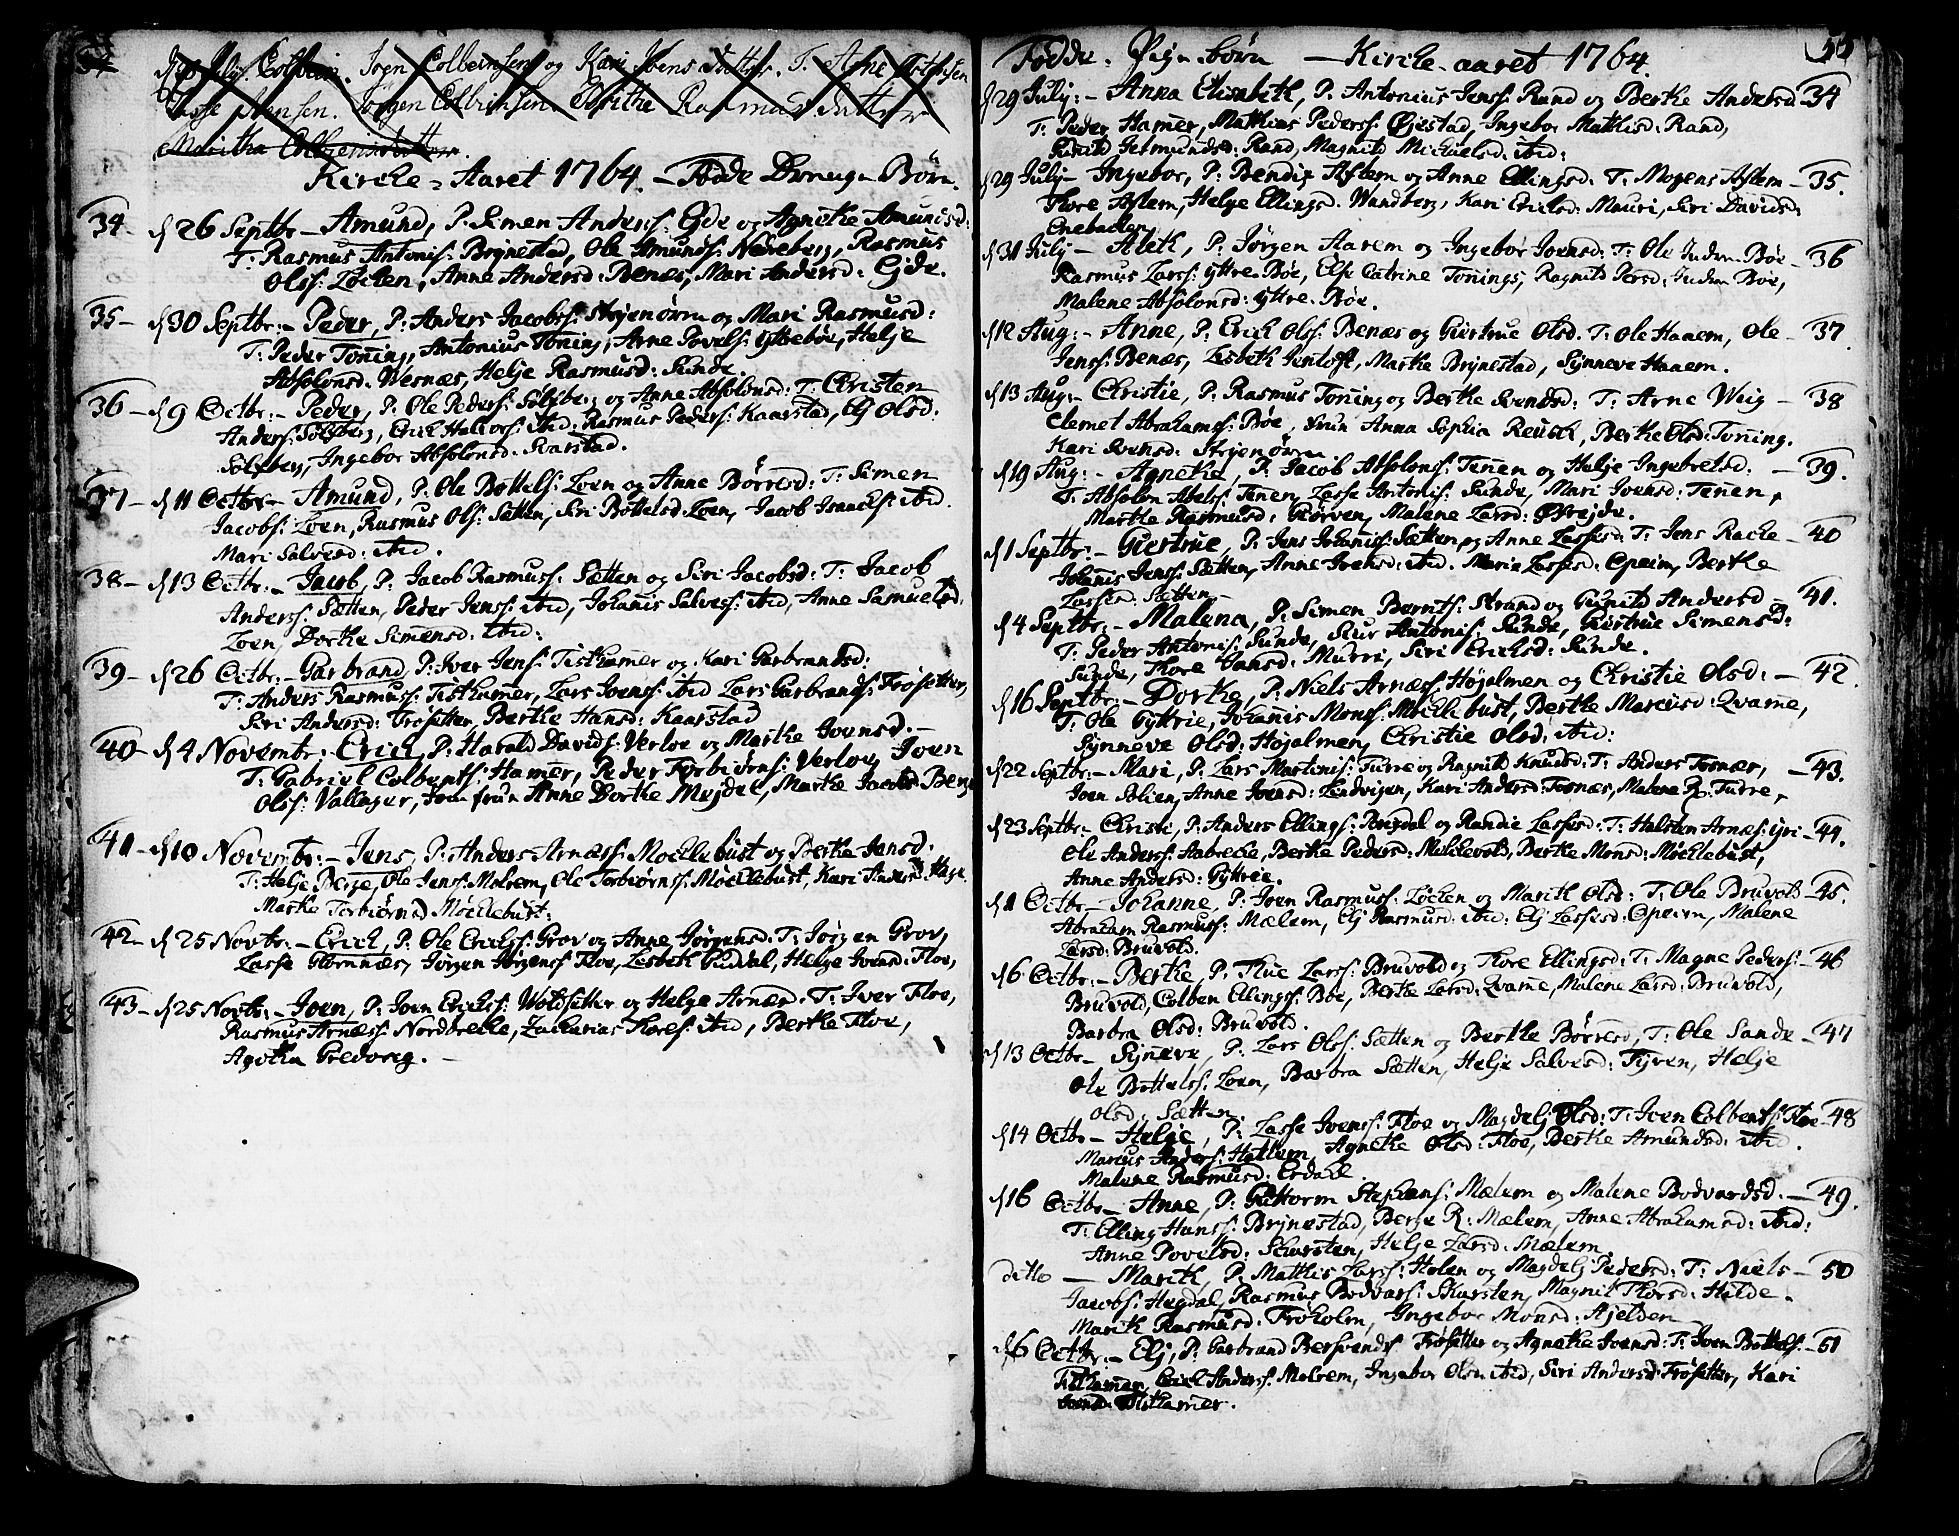 Colbein. Jogn Colbeinsen og Kari Ivens datter. T: Arne
Lasse Jensen. Jørgen Colbeinsen. Birthe Rasmus datter
Maritha Colbeinsdatter.
Kirke-Aaret 1764. - Fødde Drenge-Børn.
34- d 26 Septbr - Amund, P: Simen Anderss: Gide og Agnethe Amundsd:
T: Rasmus Antonis: Brynestad, Ole Amunds: Neseberg, Rasmus
Olss: Løcken, Anne Andersd: Benæs, Mari Andersd: Gide.
35- d 30 Septbr: - Peder, P: Anders Jacobss: Stojenørn og Mari Rasmusd:
T: Peder Toning, Antonius Toning, Arne Povels: yttrebøe, Helje
Absolonsd: Wesnæs, Helje Rasmusd: Sunde.
36- d 9 Octbr: - Peder, P: Ole Peders: Sølvberg og Anne Absolonsd: T: Christen
Anderss: Sølvberg, Erich Halvors: ibid: Rasmus Peders: Kaarstad, Elj Olsd:
Sølvberg, Ingebor Absolonsd: Svarstad.
37- d 11 Octbr - Amund, P: Ole Bottels: Loen og Anne Børresd: T: Simen
Jacobs: Loen, Rasmus Ols: Sætten, Siri Bottelsd Loen, Jacob Isaacs: ibid.
Mari Salvesd: ibid.
38- d 13 Octbr: - Jacob, P: Jacob Rasmuss: Sætten og Siri Jacobsd: T: Jacob
Anderss: Sætten, Peder Jenss: ibid, Johanis Salvess: ibid, Anne Samuelsd,
Loen, Dorthe Simensd: ibid:
39- d 26 Octbr: - Garbrand, P: Iver Jens: Tisthamer og Kari Garbrandsd:
T: Anders Rasmuss: Tisthamer, Lars Ivenss: ibid Lars Garbrands: Frøsetter,
Siri Andersd: Frøsetter, Berthe Hansd: Kaarstad
40- d 4 Novembr: Erich, P: Harald Davids: Verloe og Marthe Ivensd. -
T: Gabriel Colbents: Hamer, Peder Torbiørns: Verloe, Joen
Olss: Vallager, Jomfrun Anne Dorthe Mejdel, Marthe
41- d 10 Novembr: - Jens, P: Anders Arness: Mochlebust og Berthe Jensd:
T: Helje Berge, Ole Jens: Molvem, Ole Torbiørns: Mochlebust, Kari Andersd
Marthe Torbiørnsd Møchlebust:
42- d 25 Novbr: - Erich, P: Ole Erichs: Grov og Anne Jørgensd: T: Jørgen Grov,
Lasse Hornnæs, Jørgen Jørgens: Floe, Lisbeth Guddal, Helge Ivensd: Floe,
43- d 25 Novbr: - Joen, P: Joen Erichs: Woldsetter og Helge Arnæsd: T: Iver Floe,
Rasmus Arnæss: Nordbrecke, Zacharias Thores: ibid, Berthe Floe,
Agotha
Fødde Pige-børn - Kirke-aaret 1764. 55
d 29 July: - Anna Elisabeth, P: Antonius Jenss: Rand og Berthe Andersd 34
T: Peder Hamer, Mathias Pederss: Øjestad, Ingebor Mathisd: Rand,
Jetmundsd: Rand, Magnild Michaelsd: ibid:
d 29 July - Ingebor, P: Bendix Aslem og Anne Ellingsd: T: Mogens Aslem - 35.
Thore Aslem, Helge Ellingsd: Wandberg, Kari Ericksd: Mauri, Siri Davidsd:
Enebacken
d 31 July - Aleth, P: Jørgen Aarem og Ingebor Joensd: T: Ole Inden Bøe - 36
Rasmus Larss: yttre Bøe, Else Catrine Tonings, Ragnild Persd: Inden Bøe,
Malene Absolonsd: yttre Bøe.
d 12 Aug: - Anne, P: Erich Olss: Benæs og Giertrue Olsd. T: Ole Haaem, Ole - 37.
Jenss: Benæs, Lisbeth Jenloft, Marthe Brynestad, Synneve Haaem.
d 13 Aug: - Christie, P: Rasmus Toning og Berthe Svendsd: T: Arne Weig - 38
Clemet Abrahams: Bøe, frun Anna Sophia Reusch, Berthe Olsd: Toning.
Kari Svensd: Strjenørn
d 19 Aug: - Agnethe, P: Jacob Absolons: Tenen og Helje Ingebretsd: - 39.
T: Absolon Abelss: Tenen, Lasse Antonis: Sunde, Mari Ivensd: Tenen,
Marthe Rasmusd: Giørven, Malene Larsd: Øvrejde.
d 1 Septbr: - Giertrue, P: Jens Johanis: Sætten og Anne Lassesd: T: Jens Racke - 40
Johanis Jenss: Sætten, Anne Ivensd: ibid. Marie Lassesd: Opeim, Berthe
Lassesd: Sætten -
d 4 Septbr: - Malena, P: Simen Bernts: Strand og Gunild Andersd - 41.
T: Peder Antonis: Sunde, Siur Antonis: Sunde, Giertrue Simensd:
Sunde, Thore Jansd: Murri, Siri Erichsd: Sunde.
d 16 Septbr - Dorthe, P: Niels Arnæs: Højolmen og Christie Olsd: - 42.
T: Ole Gyttrie, Johanis Mons: Mochlebust, Berthe Marcusd: Qvame,
Synneve Olsd: Højalmen, Christie Olsd: ibid:
d 22 Septbr: - Mari, P: Lars Martinis: Turre og Ragnild Knudsd: T: Anders Tosnær, - 43.
Joen Solien, Anne Ivensd: Lindvigen, Kari Andersd: Tosnæs, Malene R: Turre,
d 23 Septbr: - Christi, P: Anders Ellings: Brigdal og Randie Lassesd: T: Halsten Arnæs: yri - 44.
Ole Anderss: Aabrecke, Berthe Pedersd: Melchevold, Berthe Monsd: Møchlebust,
Anne Andersd: Gyttrie.
d 1 Octbr - Johanne, P: Joen Rasmuss: Løcken og Marith Olsd: T: Ole Bruvold - 45.
Abraham Rasmuss: Mælem, Elj Rasmusd: ibid: Elj Lassesd: Opeim, Malene
Larsd: Bruvold.
d 6 Octbr - Berthe, P: Thue Larss: Bruvold og Thore Ellingsd: T: Magne Peders: - 46
Bruvold, Colben Ellings: Bøe, Berthe Larsd: Qvame, Malene Larsd: Bruvold,
Barbra Olsd: Bruvold.
d 13 Octbr - Synneve, P: Lars Olss: Sætten og Berthe Børresd, T: Ole Sande - 47
Ole Bottelss: Loen, Barbra Sætten, Helje Salvesd: Tyven, Helje
Olsd: Sætten.
d 14 Octbr - Helje, P: Lasse Ivens: Floe og Magdelj Olsd: T: Iven Colbents: Floe - 48
Marcus Anders: Hollem, Agnethe Olsd: Floe, Berthe Amundsd: ibid.
Malene Rasmusd: Erdahl
d 16 Octbr - Anne, P: Guttorm Stephens: Mælem og Malene Bodvardsd. - 49.
T: Elling Hanss: Brynestad, Berge R: Mælem, Anne Abrahamsd: ibid:
Anne Povelsd: Skarsten, Helje Larsd: Mælem.
ditto - Marith, P: Matthis Larss: Holen og Magdelj Pedersd: T: Niels - 50
Jacobs: Hegdal, Rasmus Bodvars: Skarsten, Magnil Thorsd: Hilde.
Marith Rasmusd: Froholm, Ingebor Monsd: Hjelden
Octbr: - Elj, P: Garbrand Bersvends: Frøsetter og Agnethe Ivensd: T: Joen Bottels: - 51
Tisthamer, Erich Anders: Molvem, Ingebor Olsd ibid, Siri Andersd: Frøsetter, Kari
Tisthamer.